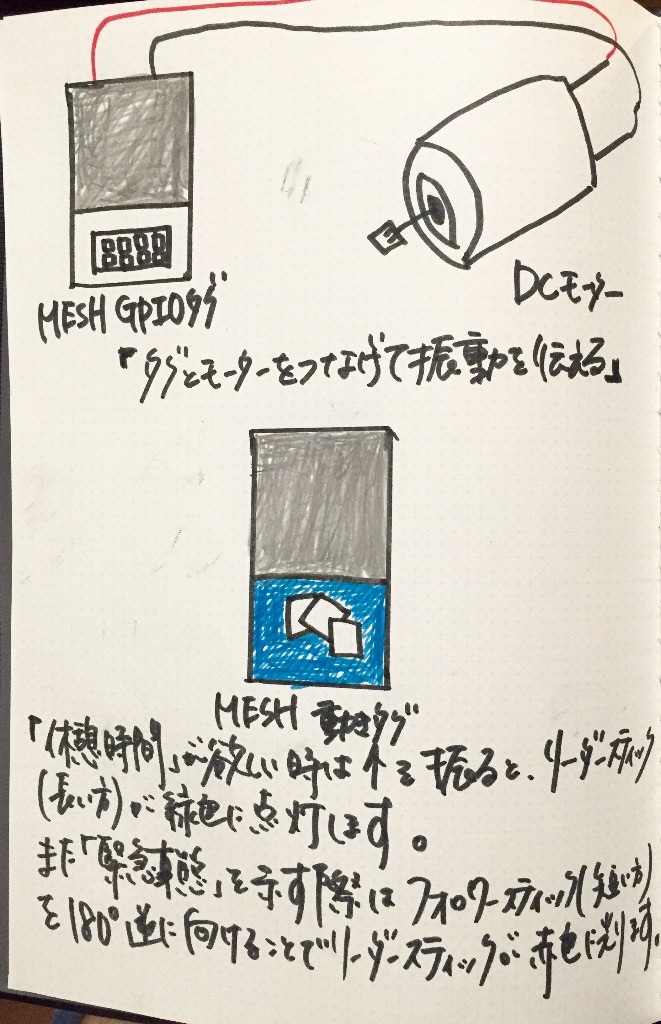 MESH GPIOタグ
DCモーター
「タグとモーターをつなげて振動を伝える」
MESH 動きタグ
「休憩時間」が欲しい時は↑を振ると、リーダースティック
(長い方)が緑色に点灯します。
また「緊急事態」を示す際はフォロワースティック(短い方)
を180°逆に向けることでリーダースティックが赤色に光ります。